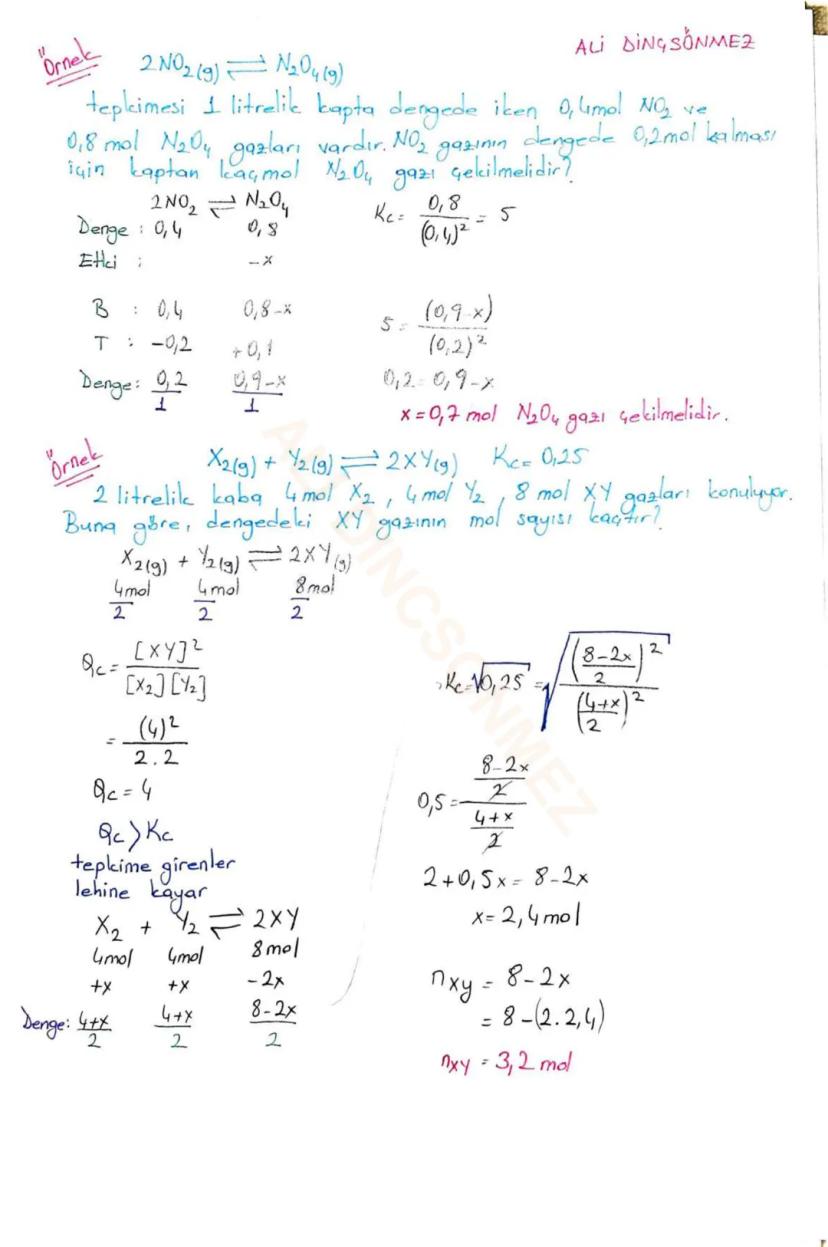 ALİ DİNÇSÖNMEZ
"Örnek
2NO₂(g) ⇌ N₂O₄(g)
tepkimesi 1 litrelik kapta dengede iken 0,4mol NO₂ ve
0,8 mol N₂O₄ gazları vardır. NO₂ gazının dengede 0,2mol kalması
için kaptan kaç mol N₂O₄ gazı çekilmelidir?
2NO₂ ⇌ N₂O₄
Denge : 0,4 0,8
Etki : -x
B : 0,4 0,8-x
T : -0,2 +0,1
Denge: 0,2/1 0,9-x/1
Kc = 0,8/(0,4)² = 5
5 = (0,9-x)/(0,2)²
0,2 = 0,9-x
x = 0,7 mol N₂O₄ gazı çekilmelidir.
"Örnek
X₂(g) + Y₂(g) ⇌ 2XY(g) Kc = 0,25
2 litrelik kaba 4mol X₂, 4mol Y₂, 8 mol XY gazları konuluyor.
Buna göre, dengedeki XY gazının mol sayısı kaçtır?
X₂(g) + Y₂(g) ⇌ 2XY(g)
4mol/2 4mol/2 8mol/2
Qc = [XY]²/[X₂][Y₂]
= (4)²/2.2
Qc = 4
Qc > Kc
tepkime girenler
lehine kayar
X₂ + Y₂ ⇌ 2XY
4mol 4mol 8mol
+x +x -2x
Denge: 4+x/2 4+x/2 8-2x/2
Kc = √0,25 = √((8-2x/2)²/(4+x/2)²)
0,5 = (8-2x/2)/(4+x/2)
2+0,5x = 8-2x
x = 2,4mol
nxy = 8-2x
= 8-(2.2,4)
nxy = 3,2 mol
ALİ DİNÇSÖNMEZ